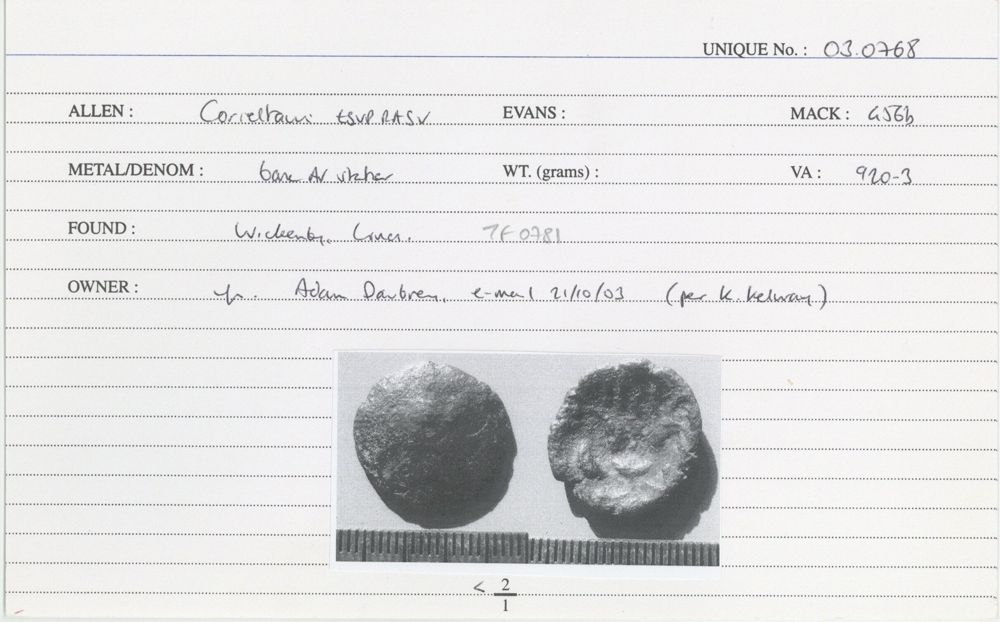 UNIQUE No. : 03.0768
ALLEN : Corieltauvi ESVP RASV EVANS : MACK : 456b
METAL/DENOM : base AV stater WT. (grams) : VA : 920-3
FOUND : Wickenby, Lincs. TF 0781
OWNER : Adam Daubney, e-mail 21/10/03 (per K. Kelway)
< 2
1